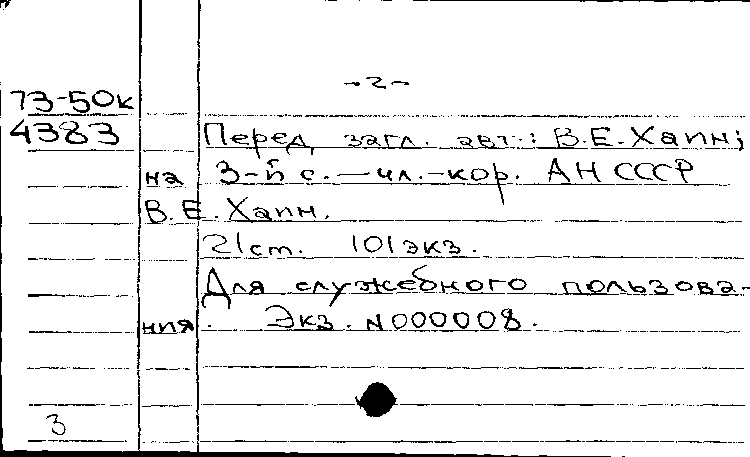 -2-
73-50к
4383 Перед загл. авт.: В.Е.Хаин;
на 3-й с. — чл.-кор. АН СССР
В.Е.Хаин.
21см. 101экз.
Для служебного пользова-
ния. Экз. N000008.
3